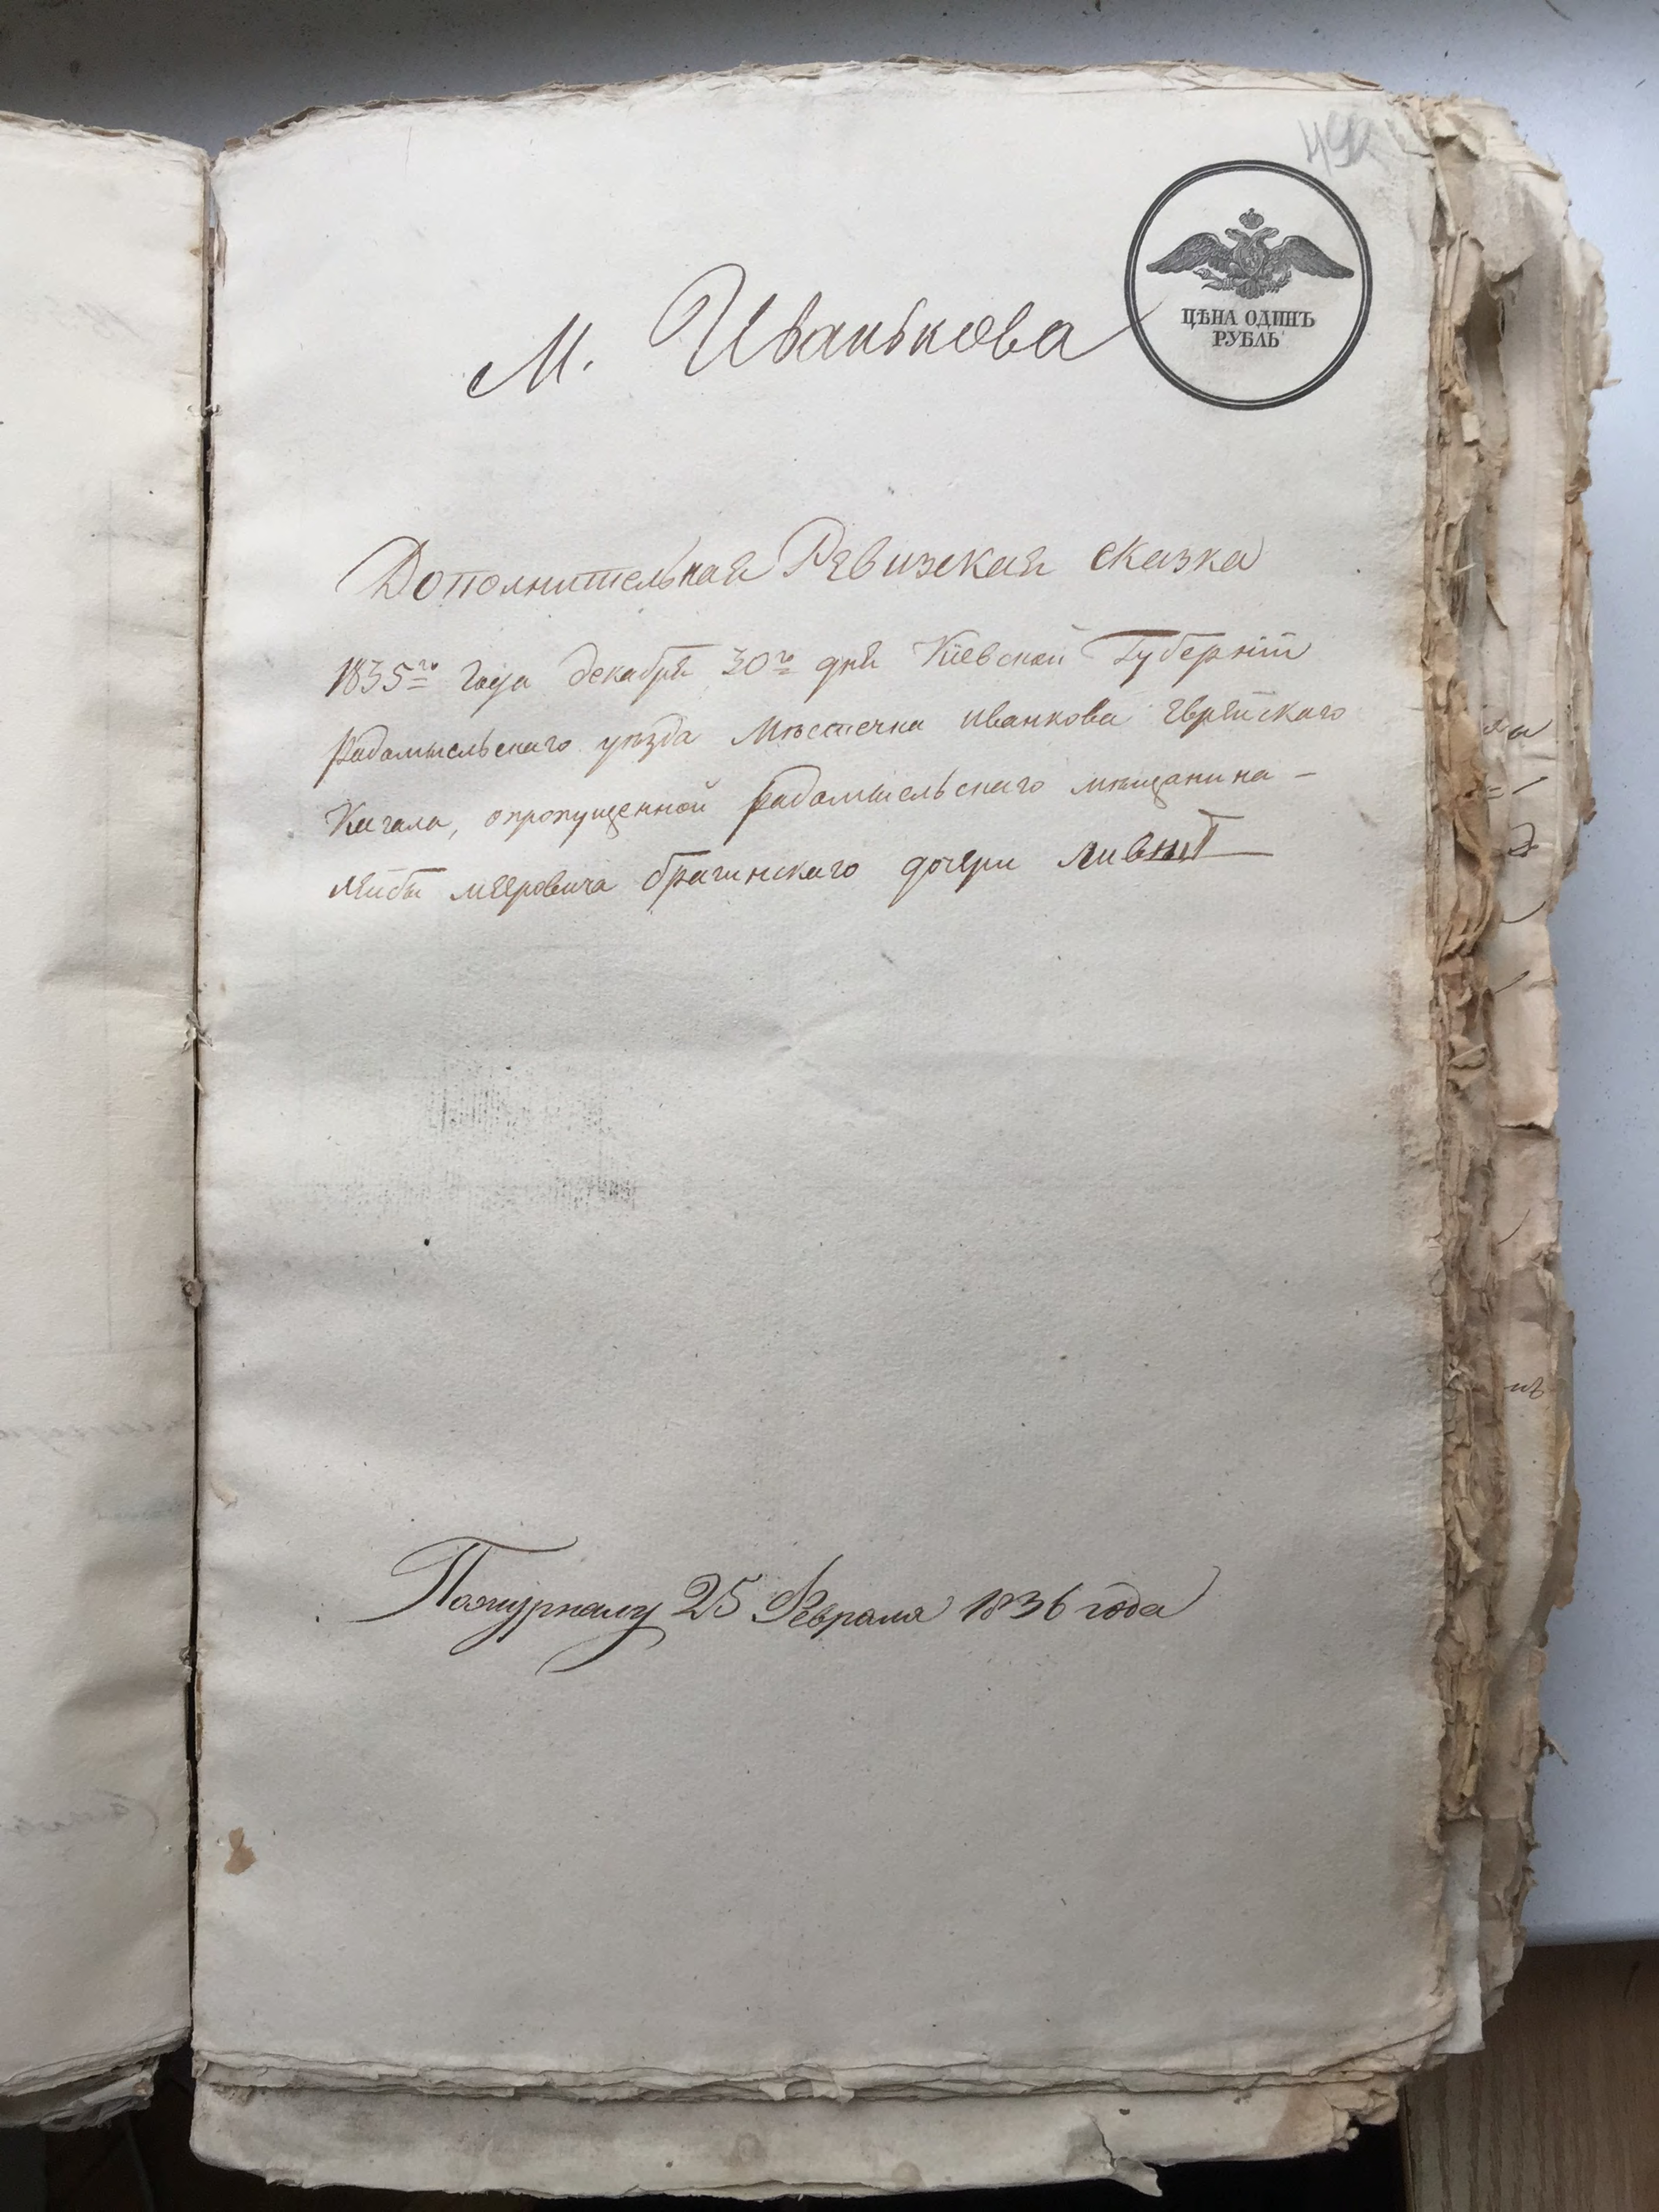 М. Иванькова
ЦѢНА ОДИНЪ
РУБЛЬ
Дополнительная Ревизская сказка
1835го года декабря 30го дня Кіевской Губерніи
Радомысльскаго уѣзда Мѣстечка Иванкова Еврейскаго
Кагала, опропущенной радомысльскаго мѣщанина -
Лейбы мееровича брагинскаго дочери
Пожурналу 25 Февраля 1836 года